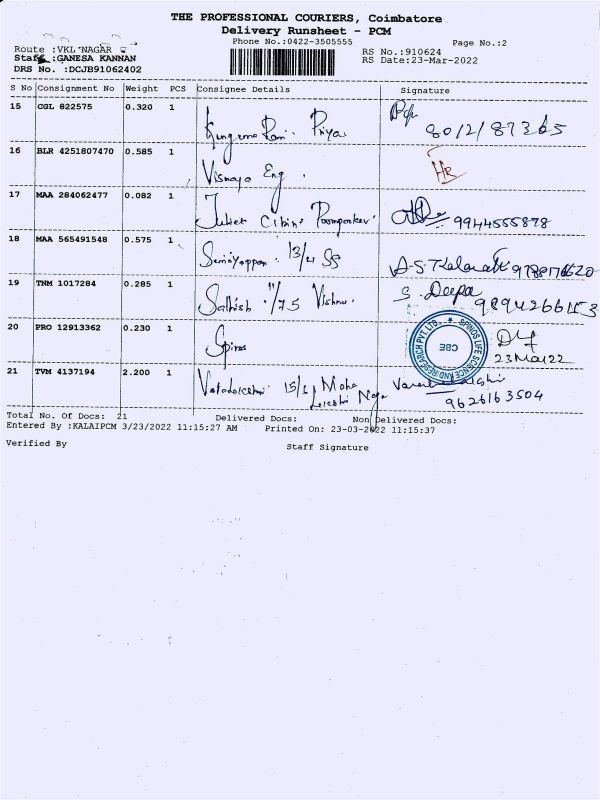 THE PROFESSIONAL COURIERS, Coimbatore
Delivery Runsheet - PCM
Phone No.:0422-3505555 Page No.:2
Route :VKL NAGAR RS No.:910624
Staff :GANESA KANNAN RS Date:23-Mar-2022
DRS No. :DCJB91062402
S No Consignment No Weight PCS Consignee Details Signature
15 CGL 822575 0.320 1
Priya 8012187365
16 BLR 4251807470 0.585 1
Vismaya Eng. HR
17 MAA 284062477 0.082 1
9944555878
18 MAA 565491548 0.575 1
13/4 SS A.S. 
19 TNM 1017284 0.285 1 S. Deepa
Sathish 11/75 Vishnu. 9894266153
20 PRO 12913362 0.230 1
Spinos SPINOS LIFE SCIENCE AND RESEARCH PVT. LTD. CBE 23 Mar 22
21 TVM 4137194 2.200 1
Maha 
Nagar 9626163504
Total No. Of Docs: 21 Delivered Docs: Non Delivered Docs:
Entered By :KALAIPCM 3/23/2022 11:15:27 AM Printed On: 23-03-2022 11:15:37
Verified By Staff Signature